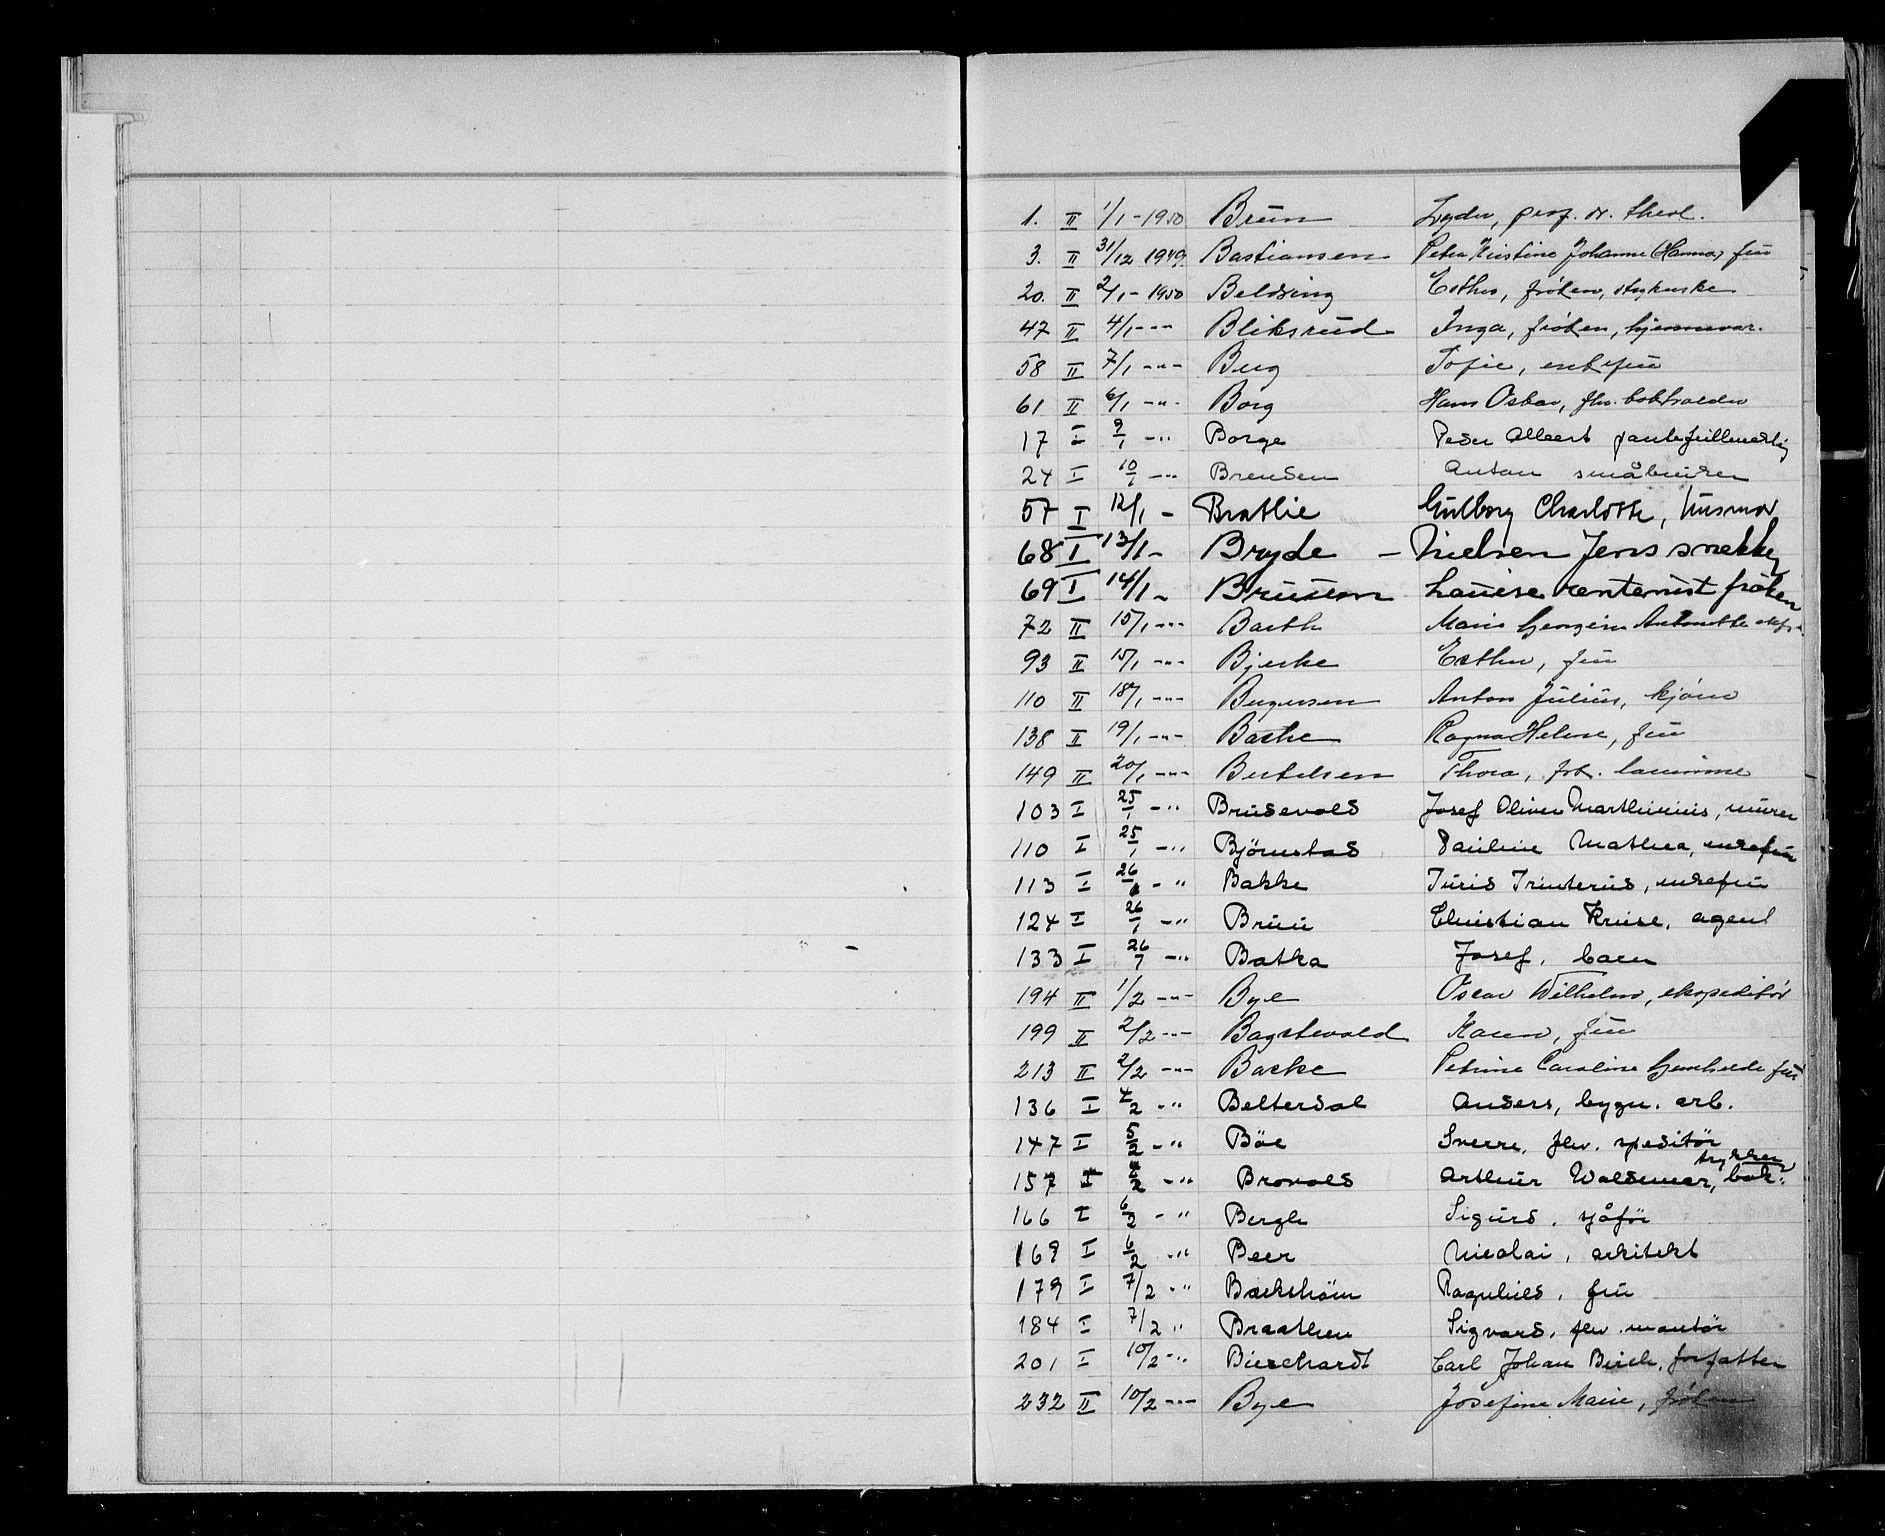 1. II 1/1-1950 Brun Lyder, prof. dr. theol.
3. II 31/12 1949. Bastiansen Petra Kristine Johanne (Hanna) fru
20. II 2/1-1950 Beldring Esther, frøken,
47 II 4/1 -"- Bliksrud Inga, frøken, hjemmevær.
58 II 7/1 -"- Berg Sofie, enkefru
61 II 6/1 -"- Borg Hans Oskar, fhv. bokholder
17 I 9/1 -" Borge Peder Albert pantefullmektig
24 I 10/1 -" Brenden Anton småbruker
57 I 12/1 - Bratlie Gulborg Charlotte, husmor
68 I 13/1 - Bryde - Nielsen Jens snekker
69 I 14/1 - Bruusm Louise kontorist frøken
72 II 15/1 -"- Barth Marie Georgine Antonette
93 II 15/1 -"- Bjerke Esther, fru
110 II 18/1 -"- Bergersen Anton Julius, kjører
138 II 19/1 -"- Bache Ragna Helene, fru
149 II 20/1 -"- Bertelsen Thora, frk. lærerinne
103 I 25/1 -" Brusevold Josef Oliver Marthinius, murer
110 I 25/1 -" Bjørnstad Pauline Mathea, enkefru
113 I 26/1 -" Bakke Juris Trinterud, enkefru
124 I 26/1 -" Bruu Christian Kruse, agent
133 I 26/1 -" Batka Josef, barn
194 II 1/2 -"- Bye Oscar Wilhelm, ekspeditør
199 II 2/2 -"- Bagstevold Karen, fru
213 II 2/2 -"- Bache Petrine Caroline fru
136 I 4/2 -" Belterdal Anders, bygn. arb.
147 I 5/2 -" Bøe Sverre, fhv. speditør
157 I 4/2 -" Brovold Arthur Waldemar, bok. trykker
166 I 6/2 -" Bergh Sigurd, sjåfør
169 I 6/2 -" Beer Nicolai, arkitekt
179 I 7/2 -" Backstrøm Ragnhild, fru
184 I 7/2 " Braathen Sigvard, fhv. montør
201 I 10/2 -" Bieschardt Carl Johan Birch, forfatter
232 II 10/2 -"- Bye Josefine Marie, frøken